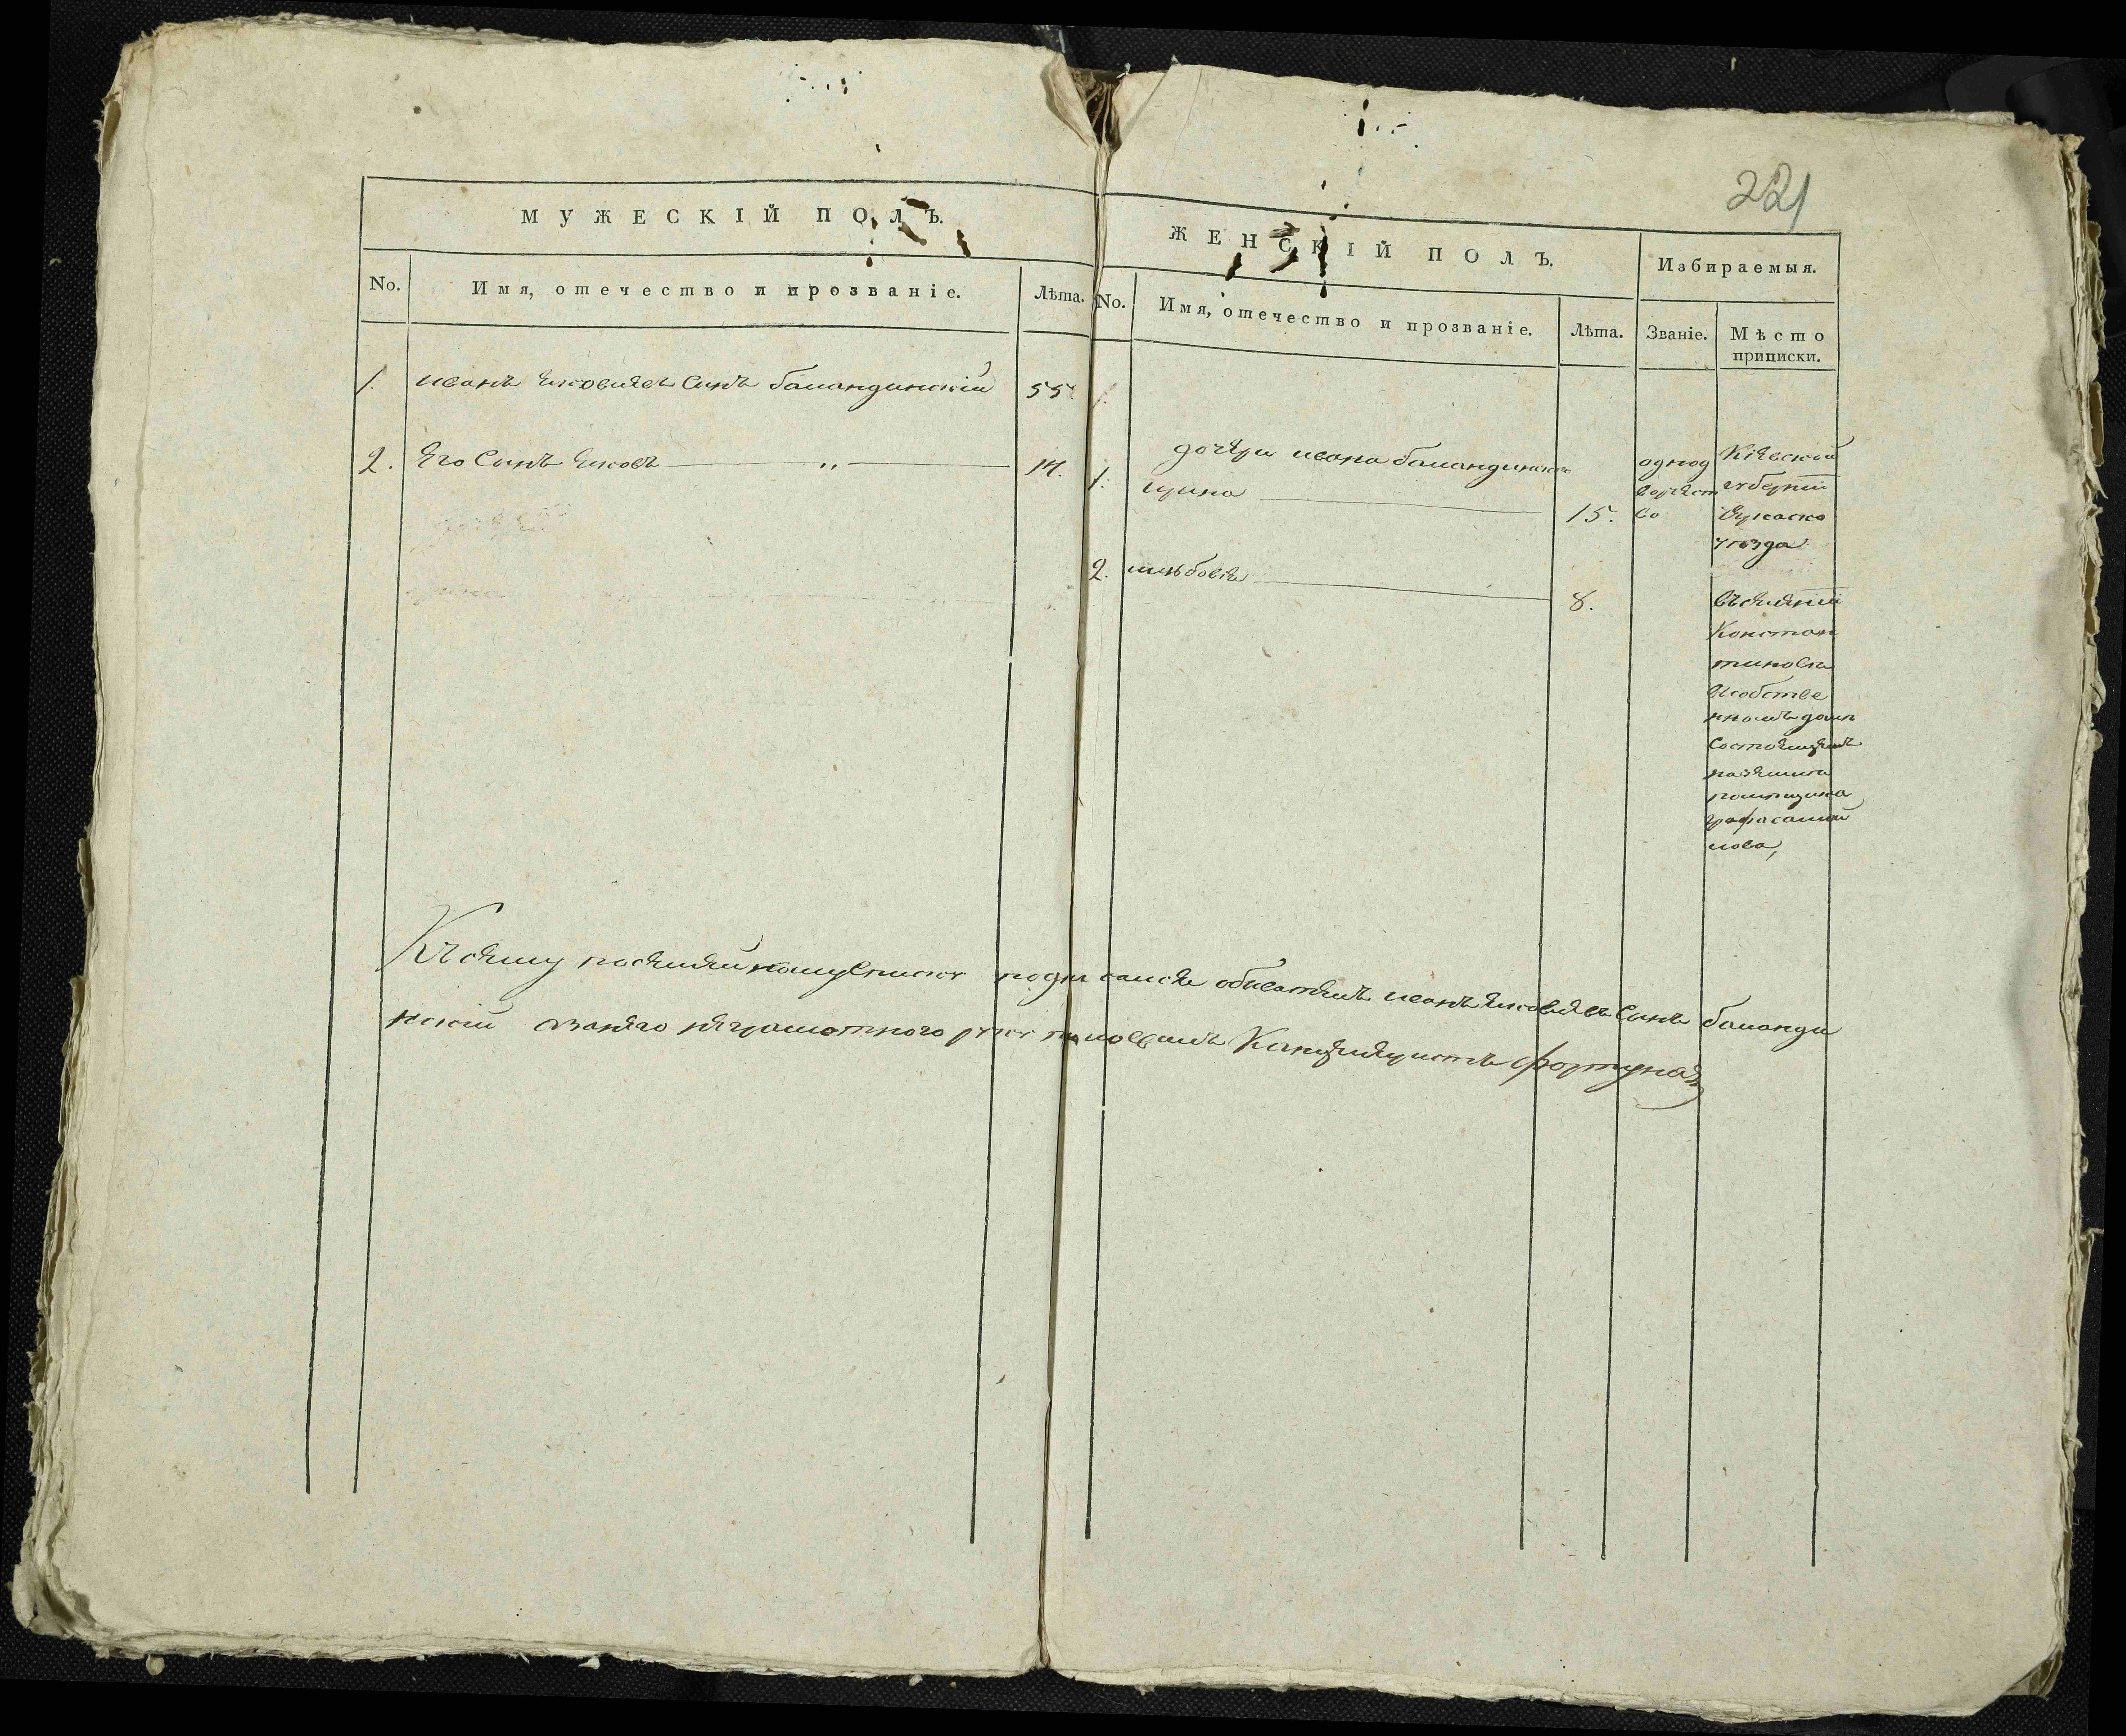 221
МУЖЕСКІЙ ПОЛЪ.
No.
Имя, отечество и прозваніе.
Лѣта.
1. иванъ яковлевъ Сынъ баландинскій 55
2. Его Сынъ яковъ „ 14.
ЖЕНСКІЙ ПОЛЪ.
No.
Имя, отечество и прозваніе.
Лѣта.
1.
дочери ивана баландинскаго
1. ирина 15.
2. 8.
Избираемыя.
Званіе.
Мѣсто
приписки.
однод
ворчест
во
Кіевской
губерніи
уѣзда
въсѣленіи
Констан
тиновки
всобстве
нномъ домѣ
состоящемъ
наземли
помѣщика
графа самой
лова,
Къ сему посемейному списку подписался обиватель иванъ яковлевъ Сынъ баланди
нскій азанего неграмотного руку приложилъ Канцеляристъ